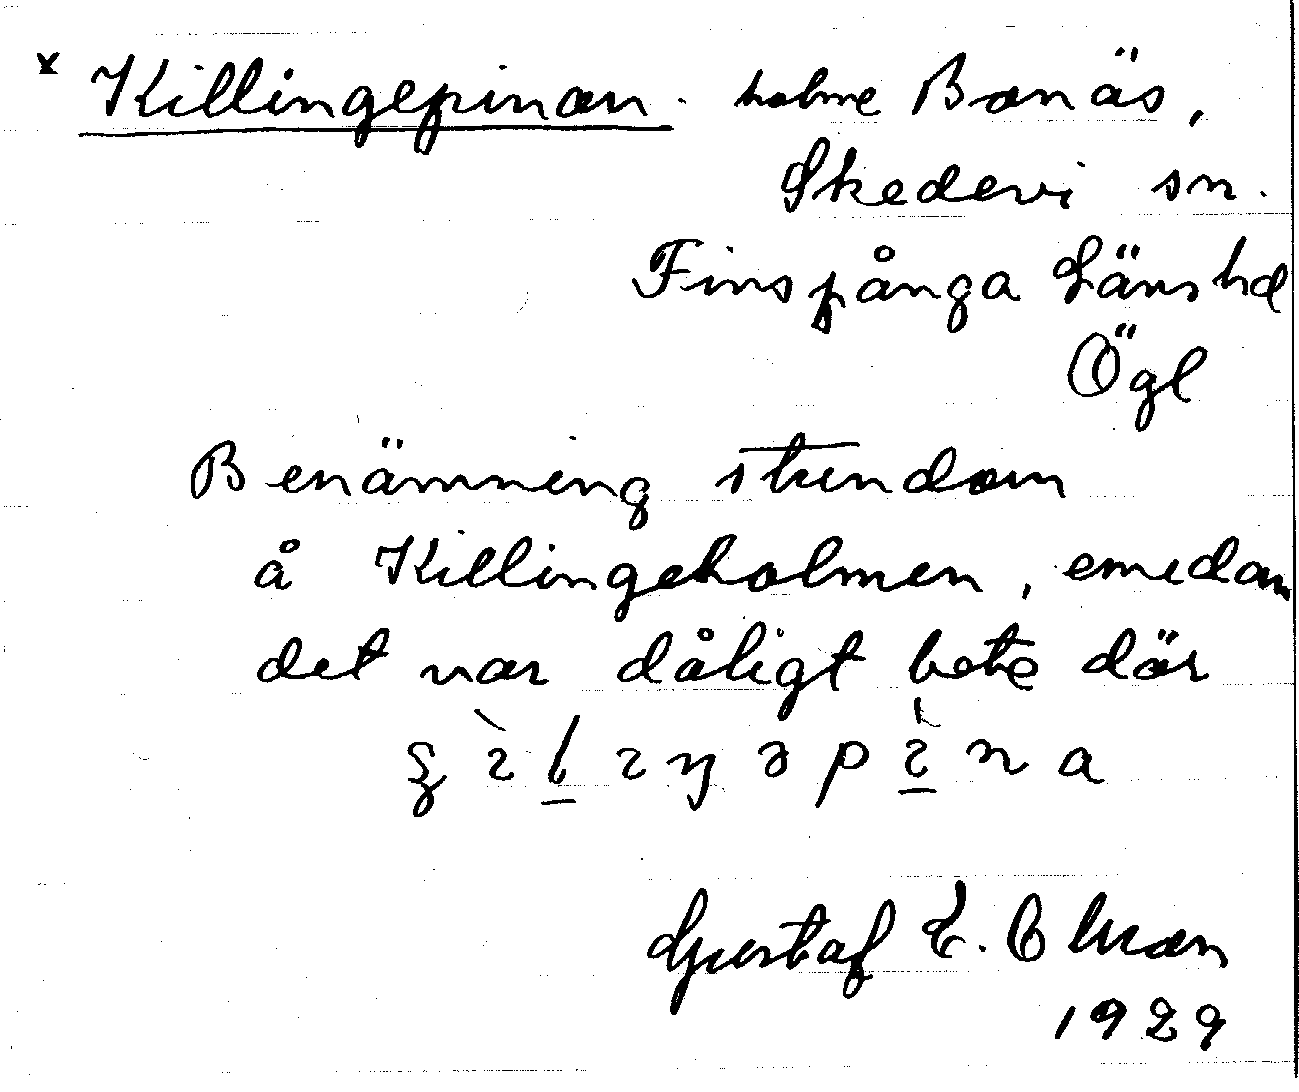 x Killingepinan. holme Bonäs,
Skedevi sn.
Finspånga Läns hd
Ögl
Benämning stundom
å Killingeholmen, emedan
det var dåligt bete där
Gustaf E.
1929